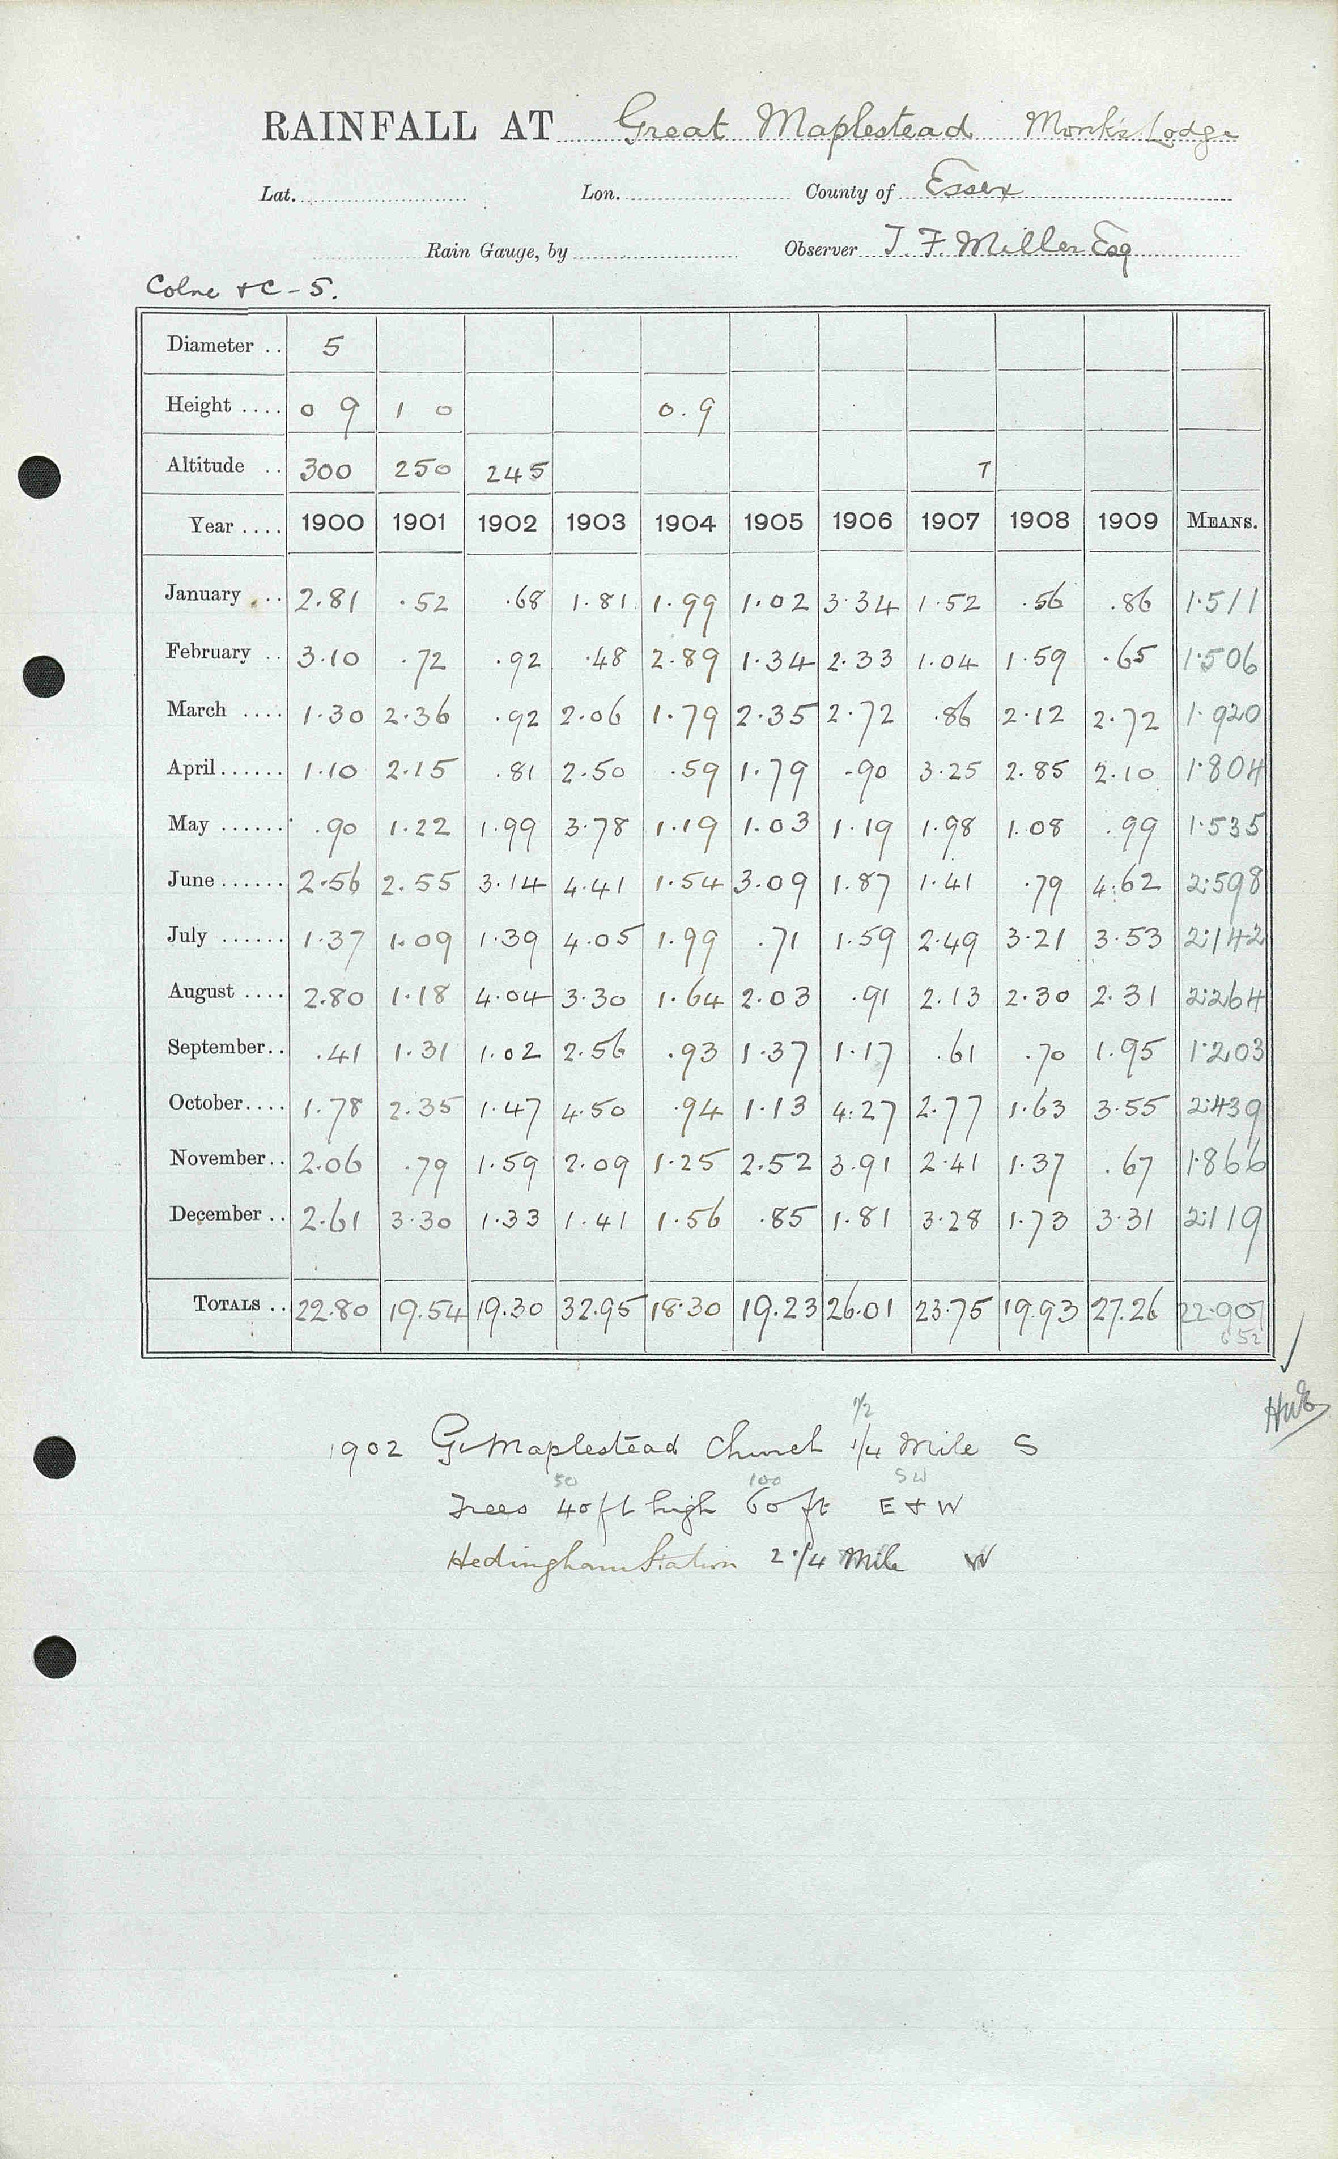 RAINFALL AT Great Maplestead Monk's Lodge
Lat. Lon. County of Essex
Rain Gauge, by Observer T. F. Miller Esq
Colne & C - 5.
Diameter .. 5
Height .... 0 9 1 0 0.9
Altitude .. 300 250 245 7
Year .... 1900 1901 1902 1903 1904 1905 1906 1907 1908 1909 MEANS.
January ... 2.81 .52 .68 1.81 1.99 1.02 3.34 1.52 .56 .86 1.511
February .. 3.10 .72 .92 .48 2.89 1.34 2.33 1.04 1.59 .65 1.506
March .... 1.30 2.36 .92 2.06 1.79 2.35 2.72 .86 2.12 2.72 1.920
April...... 1.10 2.15 .81 2.50 .59 1.79 .90 3.25 2.85 2.10 1.804
May ...... .90 1.22 1.99 3.78 1.19 1.03 1.19 1.98 1.08 .99 1.535
June ...... 2.56 2.55 3.14 4.41 1.54 3.09 1.87 1.41 .79 4.62 2.598
July ...... 1.37 1.09 1.39 4.05 1.99 .71 1.59 2.49 3.21 3.53 2.142
August .... 2.80 1.18 4.04 3.30 1.64 2.03 .91 2.13 2.30 2.31 2.264
September.. .41 1.31 1.02 2.56 .93 1.37 1.17 .61 .70 1.95 1.203
October.... 1.78 2.35 1.47 4.50 .94 1.13 4.27 2.77 1.63 3.55 2.439
November.. 2.06 .79 1.59 2.09 1.25 2.52 3.91 2.41 1.37 .67 1.866
December .. 2.61 3.30 1.33 1.41 1.56 .85 1.81 3.28 1.73 3.31 2.119
TOTALS .. 22.80 19.54 19.30 32.95 18.30 19.23 26.01 23.75 19.93 27.26 22.907
652
1/2
1902 Gt Maplestead Church 1/4 Mile S
50 100 SW
Trees 40 ft high 60 ft E & W
Hedingham Station 2 1/4 Mile W